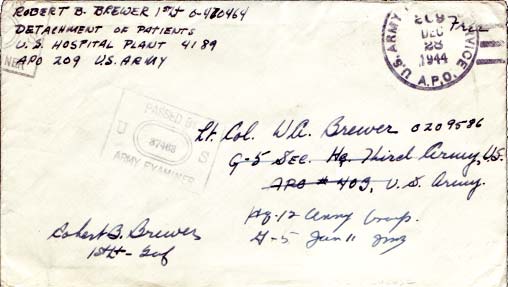 ROBERT B. BREWER 1st Lt O-470464
DETACHMENT OF PATIENTS
U.S. HOSPITAL PLANT 4189
APO 209 U.S. ARMY
Free
U.S. ARMY
209
DEC
28
1944
A.P.O.
PASSED BY
U S
37468
ARMY EXAMINER
Lt. Col. W.A. Brewer 0209586
G-5 Sec. Hq. Third Army, U.S.
APO # 403, U.S. Army.
Hq. 12 Army Group.
G-5 Jan 11
Robert B. Brewer
1st Lt - Inf